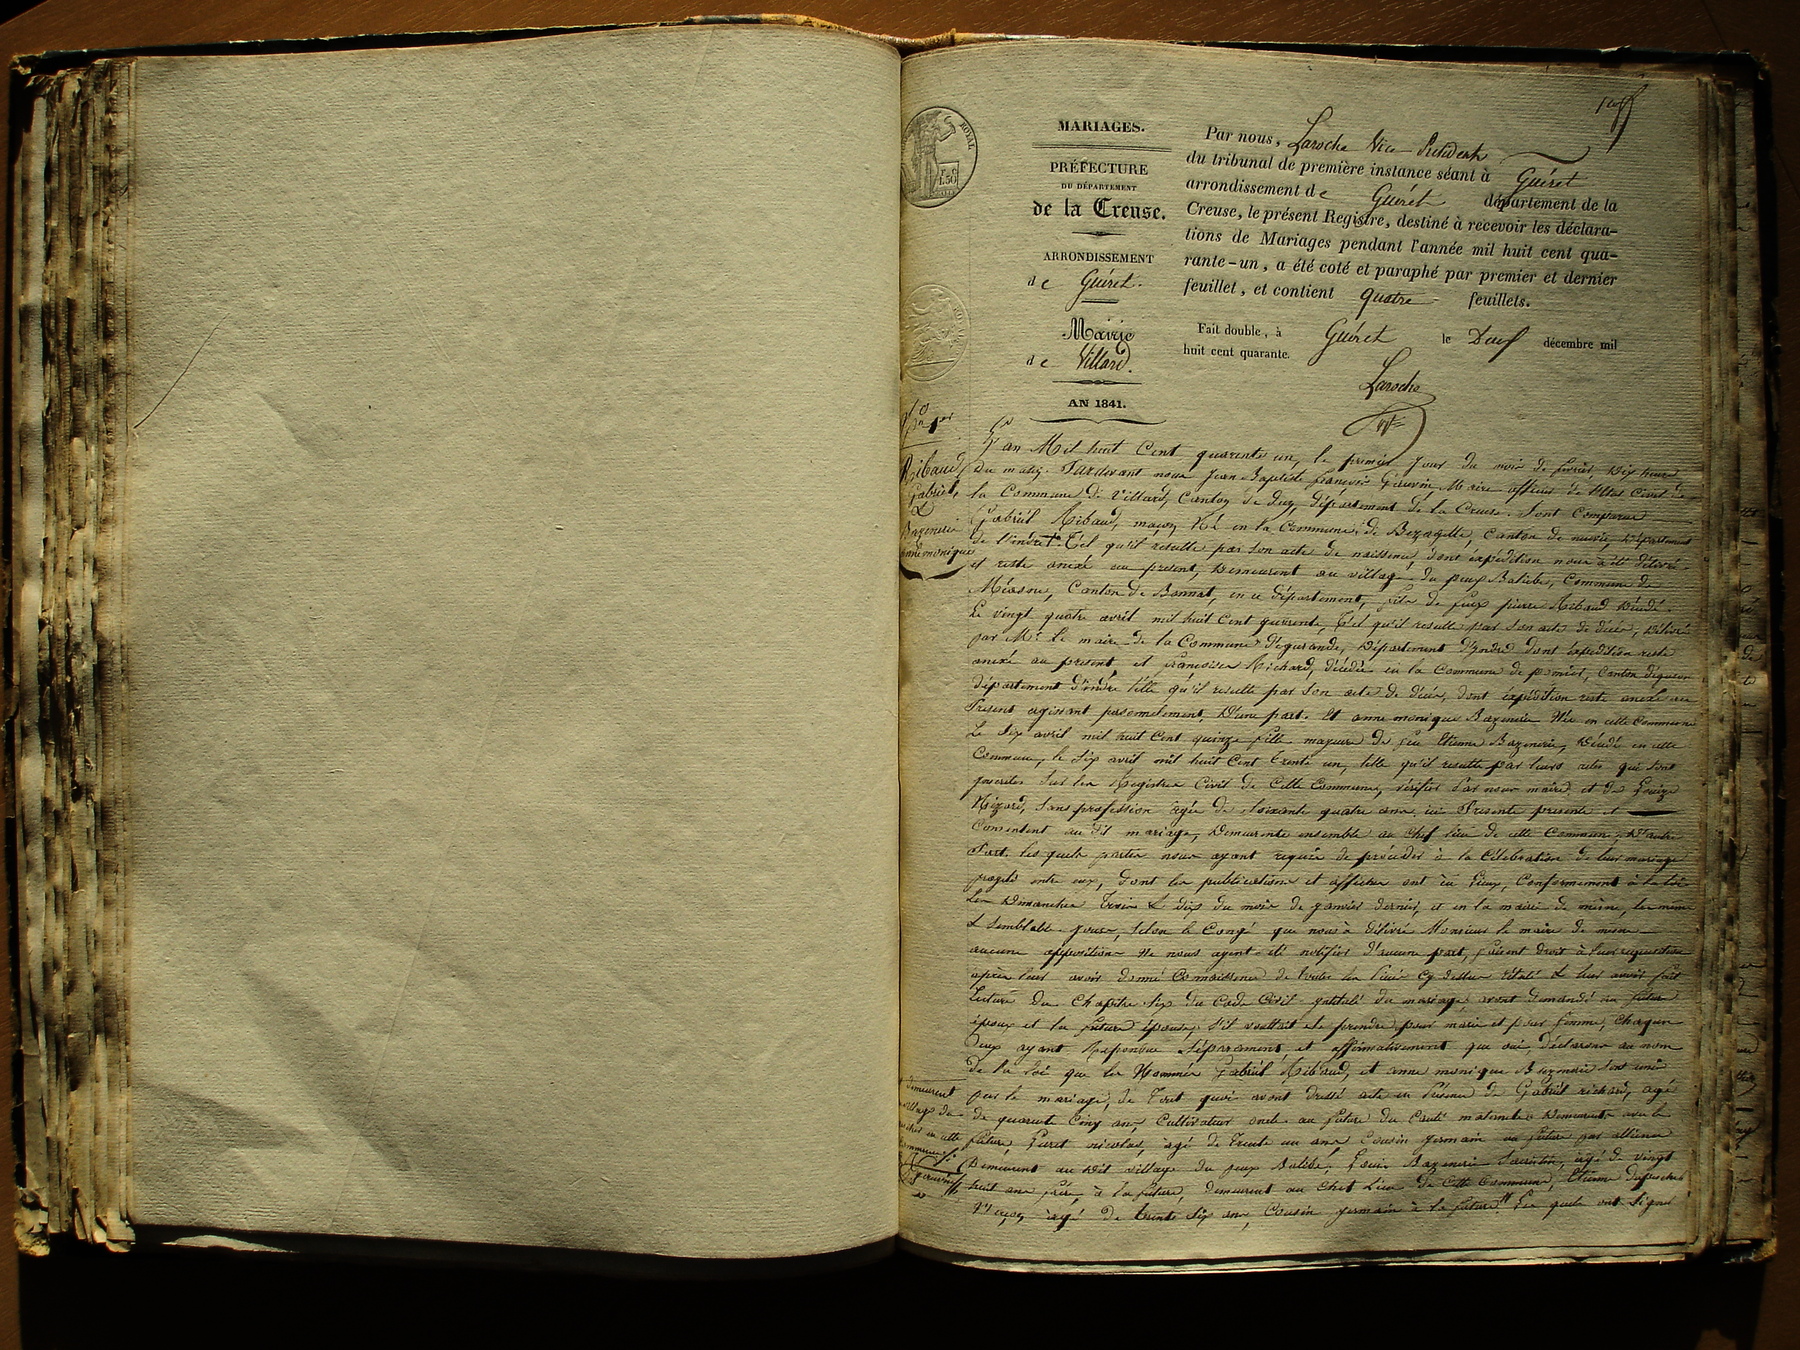 ROYAL
1.50
MARIAGES.
PRÉFECTURE
DU DÉPARTEMENT
de la Creuse.
ARRONDISSEMENT
de Guéret.
Mairie
de Villard.
AN 1841.
Par nous, Laroche Vice Président
du tribunal de première instance séant à Guéret
arrondissement de Guéret département de la
Creuse, le présent Registre, destiné à recevoir les déclara-
tions de Mariages pendant l'année mil huit cent qua-
rante-un, a été coté et paraphé par premier et dernier
feuillet, et contient quatre feuillets.
Fait double, à Guéret le Deux décembre mil
huit cent quarante.
Laroche
Ribaud
Gabriel,
&
Bazenerie
anne monique
L'an Mil huit Cent quarente un, le premier Jour du mois de fevrier, Dix heures
du matin. Pardevant nous Jean Baptiste françois Maire officier de l'état Civil de
la Commune de Villard, Canton de Dun, département de la Creuse. Sont Comparus
Gabriel Ribaud, maçon, Né en la Commune de Canton de Département
de l'indre. Tel qu'il resulte par son acte de naissance, dont expédition nous a été délivré
et reste anexé au present, Demeurent au village du peux Commune de
Méasne, Canton de Bonnat, en ce département, fils de feux pierre Ribaud Décédé
Le vingt quatre avril mil huit Cent quarente, Tel qu'il resulte par son acte de décès, délivré
par Mr Le maire de la Commune d'éguzande, Département d'Indre dont expédition reste
anexé au present, et françoise Richard, décédée en la Commune de Canton
département d'indre telle qu'il resulte par son acte de décès, dont expédition reste anexé au
Present agissant personnelement, D'une part. Et anne monique Bazenerie Née en cette Commune
Le dix avril mil huit Cent quinze fille majeure de feu Etienne Bazenerie, Décédé en cette
Commune, le six avril mil huit Cent Trente un, telle qu'il resulte par leurs actes qui sont
inscrites sur les Registres Civil de Cette Commune, vérifier par nous maire, et de Louize
sans profession agée de soixante quatre ans, ici Presente presente et
Consentent au dit mariage, Demeurente ensemble au Chef lieu de cette Commune, D'autre
Part. les quels parties nous ayant requis de procéder à la Célébration de leur mariage
projeté entre eux, dont les publications et affiches ont eu Lieux, Conformement à la loi
Les Dimanches Trois & dix du mois de janvier dernier, et en la mairie de les même
& semblable jours, selon le Congé que nous à délivré Monsieur le maire de
aucune opposition Ne nous ayent été notifier d'aucune part, faisent droit à leur requisition
après leur avoir donné Connaissance de toutes les Pièces cy dessus rélaté & leur avoir fait
Lecture du Chapitre six du Code Civil intitulé du mariage, avont demandé au futur
époux et la future épouse, s'il voullait se prendre pour marie et pour femme, Chaqun
d'eux ayant Reponsue séparement, et affirmativement que oui, déclarons au nom
de la loi que les Nommés Gabriel Ribaud, et anne monique Bazenerie sont unis
par le mariage, de Tout quoi avont dressé acte en Présence de Gabriel richard, agé
de quarente Cinq ans, Cultivateur oncle au future du Coté maternelle Demeurent avec le
future, nicolas, agé de Trente un ans Cousin germain au future par alliance
Demeurent au Dit village du peux Louis Bazenerie agé de vingt
huit ans frère à la future, demeurent au Chef Lieu de Cette Commune, Etienne
agé de trente six ans, Cousin germain à la future # Les quels ont signé
demeurent
au village de
en cette
Commune